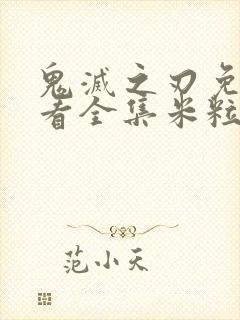 鬼滅之刃免
者全集米粒
范小天